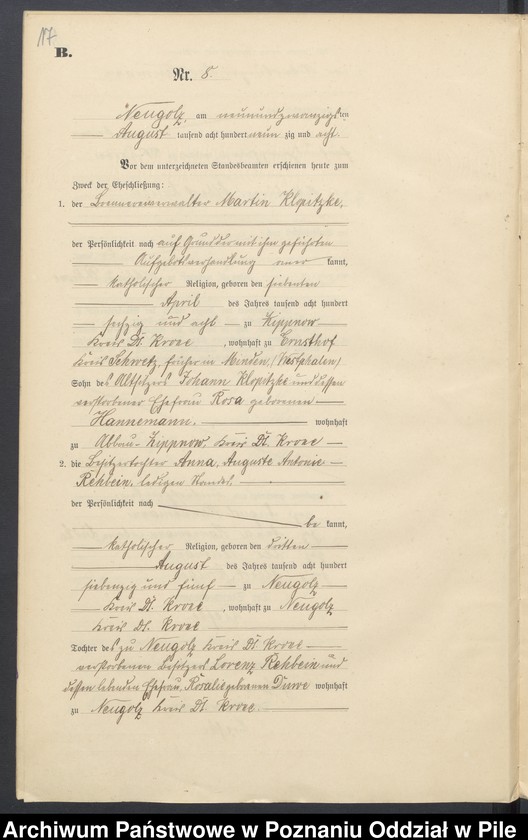 117.
B.
Nr. 8.
Neugolz, am neunundzwanzigsten
August tausend acht hundert neun zig und acht.
Vor dem unterzeichneten Standesbeamten erschienen heute zum
Zweck der Eheschließung:
1. der Brennereiverwalter Martin Klopitzke,
der Persönlichkeit nach auf Grund der mit ihm geführten
Aufgebotsverhandlung aner kannt,
katholischer Religion, geboren den siebenten
April des Jahres tausend acht hundert
sechzig und acht zu Kippnow
Kreis Dt. Krone, wohnhaft zu Ernsthof
Kreis Schwetz, früher in Minden (Westphalen)
Sohn des Altsitzers Johann Klopitzke und dessen
verstorbener Ehefrau Rosa geborenen
Hannemann, wohnhaft
zu Abbau-Kippnow Kreis Dt. Krone
2. die Besitzertochter Anna, Auguste Antonie
Rehbein, ledigen Standes,
der Persönlichkeit nach
be kannt,
katholischer Religion, geboren den dritten
August des Jahres tausend acht hundert
siebenzig und fünf zu Neugolz
Kreis Dt. Krone, wohnhaft zu Neugolz
Kreis Dt. Krone
Tochter des zu Neugolz Kreis Dt. Krone
verstorbenen Besitzers Lorenz Rehbein und
dessen lebenden Ehefrau, Rosalie geborenen Duwe wohnhaft
zu Neugolz Kreis Dt. Krone.
Archiwum Państwowe w Poznaniu Oddział w Pile